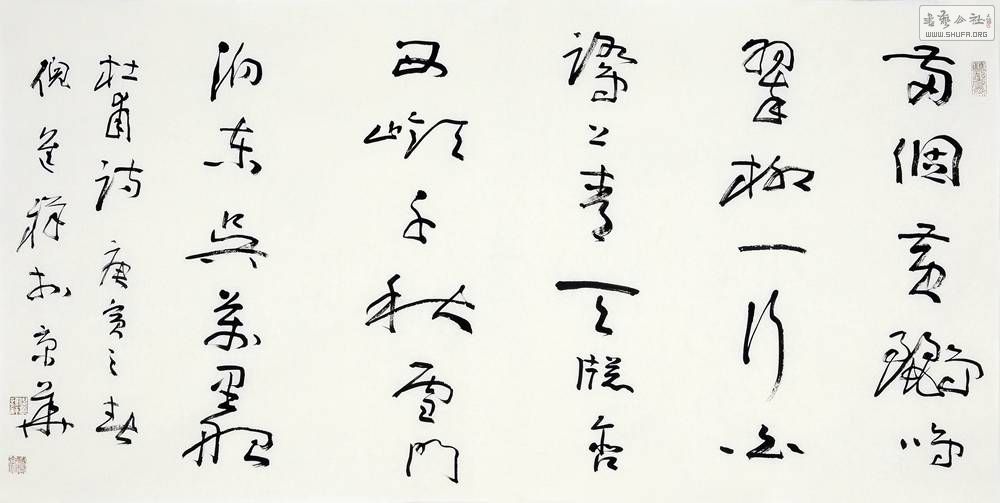 兩個黃鸝鳴
翠柳一行白
鷺上青天牕含
西嶺千秋雪門
泊東吳萬里船
杜甫詩 庚寅之春
倪進祥於京華
書藝公社
WWW.SHUFA.ORG